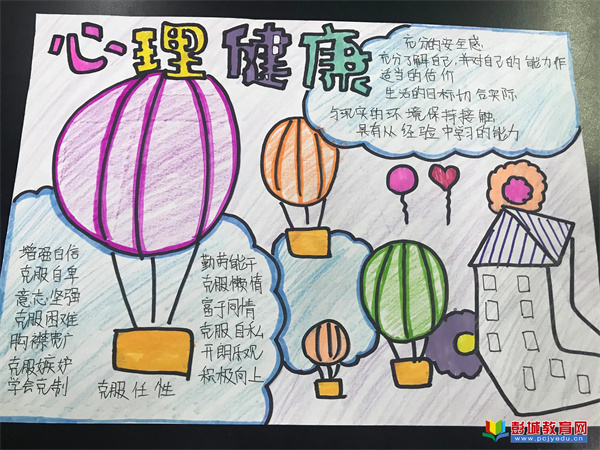 心理健康
充分的安全感
充分了解自己,并对自己的能力作
适当的估价
生活的目标切合实际
与现实的环境保持接触
具有从经验中学习的能力
增强自信
克服自卑
意志坚强
克服困难
胸襟宽广
克服嫉妒
学会克制
克服任性
勤劳能干
克服懒惰
富于同情
克服自私
开朗乐观
积极向上
彭城教育网
www.pcjyedu.cn